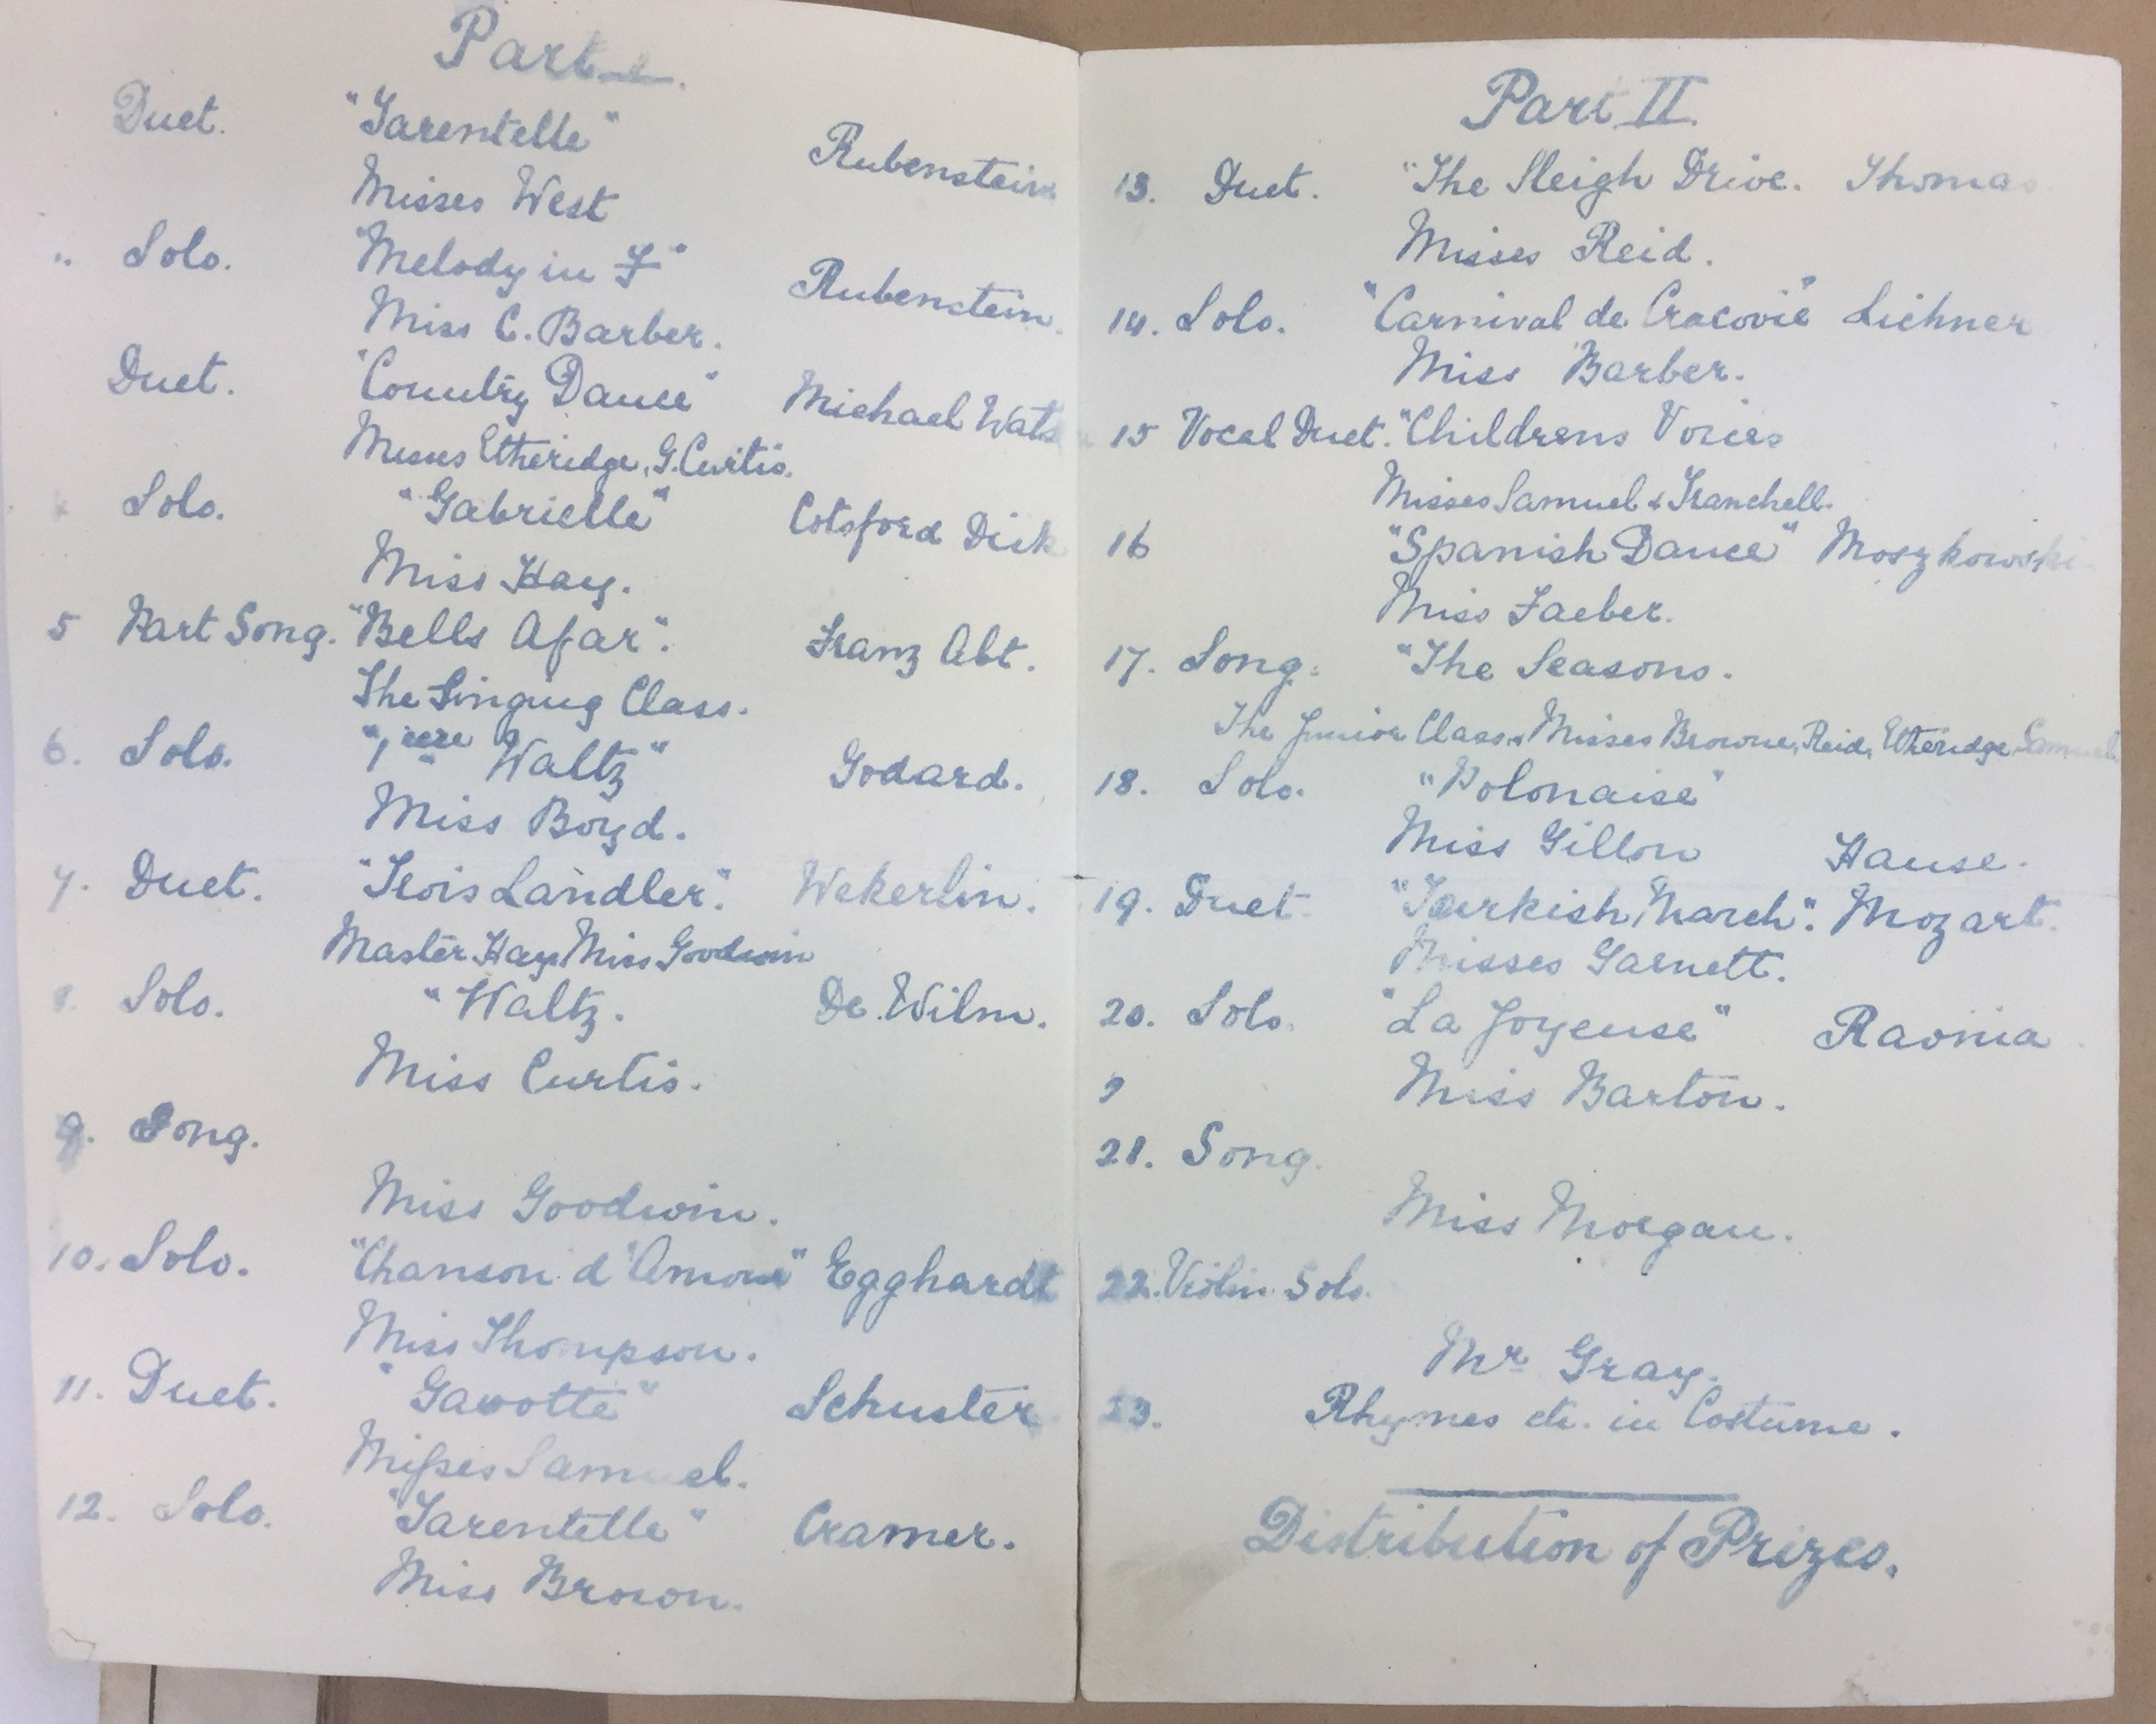 Part I.
Duet. "Tarentelle" Rubenstein
Misses West
" Solo. "Melody in F" Rubenstein.
Miss C. Barber.
Duet. "Country Dance" Michael Watson
Misses Etheridge, G. Curtis.
Solo. "Gabrielle" Cotsford Dick
Miss Hay.
5 Part Song. "Bells Afar". Franz Abt.
The Singing Class.
6. Solo. "1iere Waltz" Godard.
Miss Boyd.
7. Duet. "Trois Landler". Wekerlin.
Master Hay, Miss Goodwin
8. Solo. "Waltz. De Wilm.
Miss Curtis.
9. Song.
Miss Goodwin.
10. Solo. "Chanson d'Amour" Egghardt
Miss Thompson.
11. Duet. "Gavotte" Schuster
Misses Samuel.
12. Solo. "Tarentelle" Cramer.
Miss Brown.
Part II.
13. Duet. "The Sleigh Drive. Thomas
Misses Reid.
14. Solo. "Carnival de Cracovie" Lichner
Miss Barber.
15 Vocal Duet. "Childrens Voices
Misses Samuel & Tranchell.
16 "Spanish Dance" Moszkowski
Miss Faeber.
17. Song. "The Seasons.
The Junior Class & Misses Browne, Reid, Etheridge Samuel
18. Solo. "Polonaise"
Miss Gillon Hause.
19. Duet. "Turkish March". Mozart.
Misses Garnett.
20. Solo. "La Joyeuse" Ravina
Miss Barton.
21. Song.
Miss Morgan.
22. Violin Solo.
Mr Gray.
23. Rhymes etc. in Costume.
Distribution of Prizes.